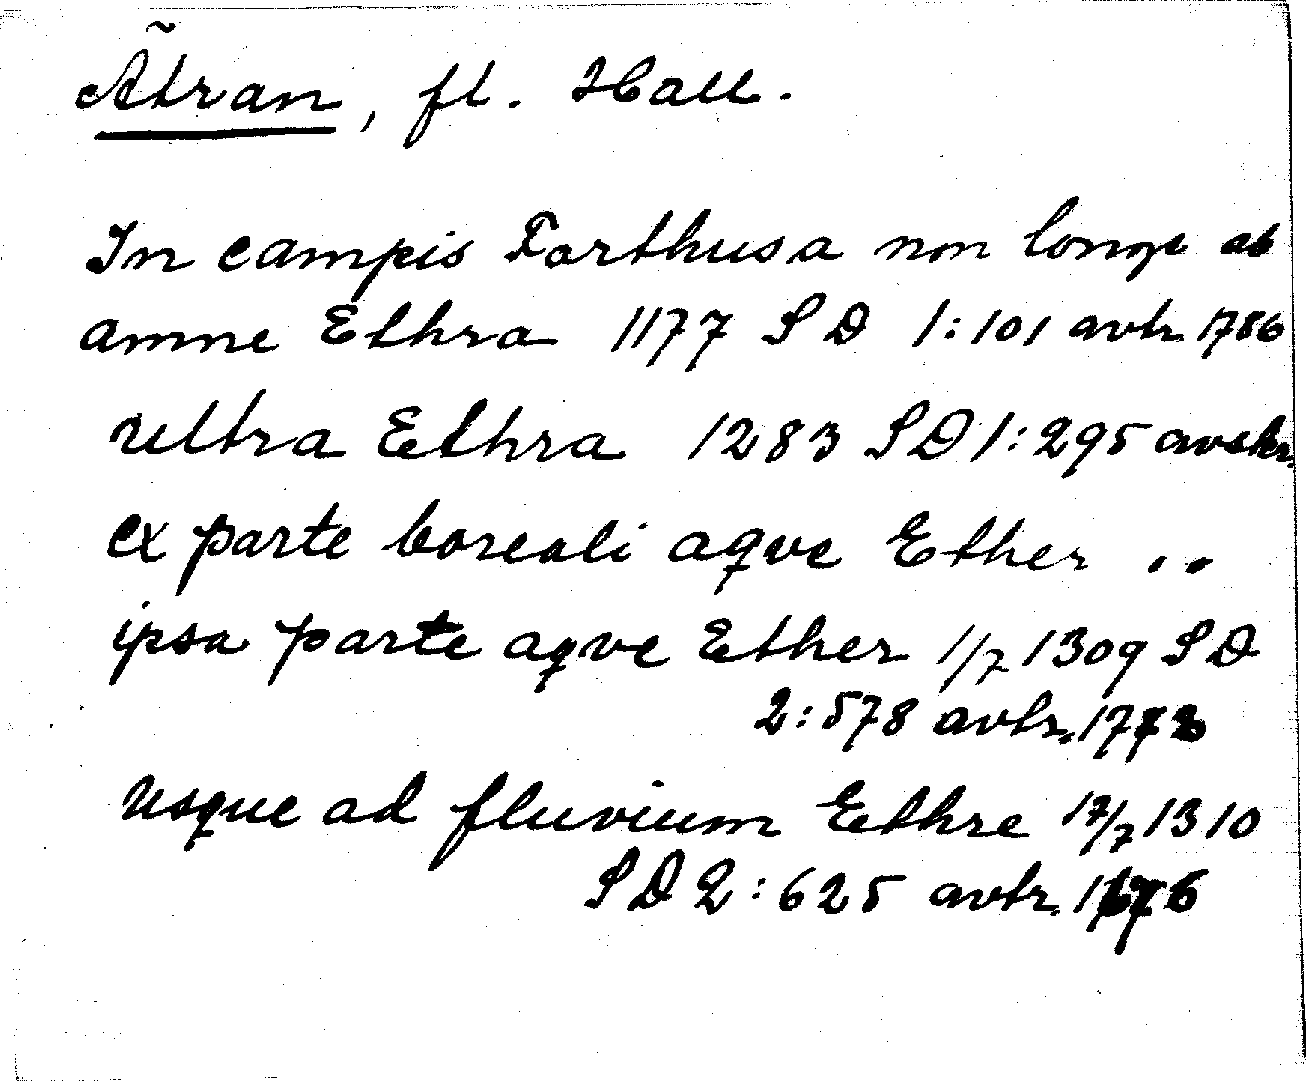 Ätran, fl. Hall.
In campis Farthusa non longe ab
amne Ethra 1177 SD 1:101 avtr. 1786
ultra Ethra 1283 SD 1:295 avskr.
ex parte boreali aqve Ether ..
ipsa parte aqve Ether 1/7 1309 SD
2:578 avtr.
usque ad fluvium Ethre 17/7 1310
SD 2:625 avtr.